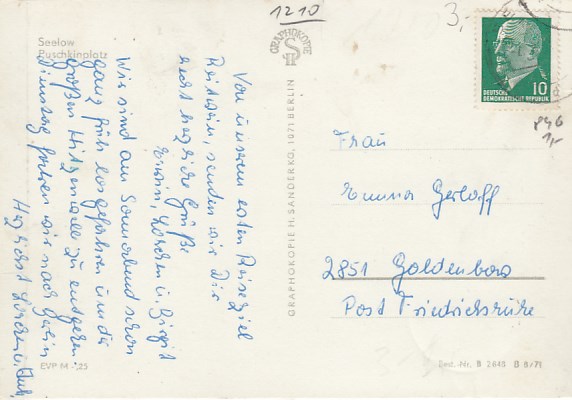 1210
3,-
Seelow
Puschkinplatz
GRAPHOKOPIE
Von unserem ersten Reiseziel
Reitwein, senden wir Dir
recht herzliche Grüße
Erwin, Lorchen u. Birgit
Wir sind am Sonnabend schon
ganz früh losgefahren um die
großen Hitzewelle zu entgehen.
Dienstag fahren wir nach
Herzlichst Lorchen u.
EVP M -,25
GRAPHOKOPIE H. SANDER KG, 1071 BERLIN
10
DEUTSCHE
DEMOKRATISCHE REPUBLIK
846
1,-
Frau
Emma Gerloff
2851 Goldenbow
Post Friedrichsruhe
Best.-Nr. B 2645 B 8/71